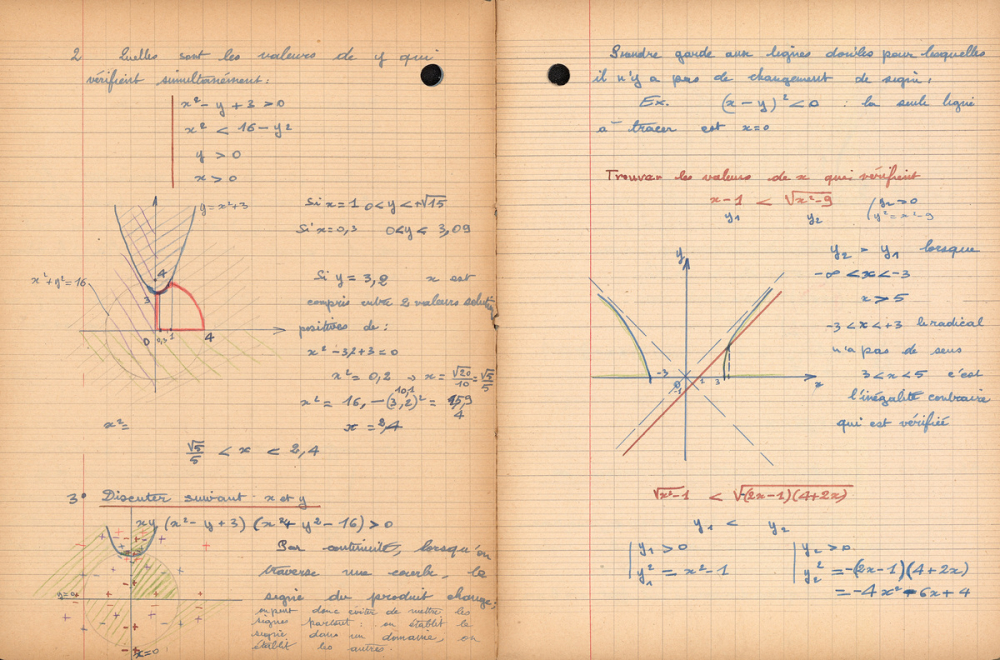 2 Quelles sont les valeurs de y qui
vérifient simultanément:
x² - y + 3 > 0
x² < 16 - y²
y > 0
x > 0
y = x²+3
x²+y²=16
4
3
0 0,3 1 4
Si x = 1 0 < y < +√15
Si x = 0,3 0 < y < 3,09
Si y = 3,2 x est
compris entre 2 valeurs
positives de :
x² - 3,2 + 3 = 0
x² = 0,2 → x = √20/10 = √5/5
10,1
x² = 16, - (3,2)² = 5,9
4
x = 2,4
x² =
√5/5 < x < 2,4
3° Discuter suivant x et y
xy (x² - y + 3) (x² + y² - 16) > 0
Par continuité, lorsqu'on
traverse une courbe, le
signe du produit change;
on peut donc éviter de mettre les
signes partout : on établit le
signe dans un domaine, on
établit les autres.
y=0
x=0
Prendre garde aux lignes doubles pour lesquelles
il n'y a pas de changement de signe,
Ex. (x - y)² < 0 : la seule ligne
à tracer est x=0
Trouver les valeurs de x qui vérifient
x - 1 < √x²-9
y₁ y₂
y₂ > 0
y² = x² - 9
y
-3 0 1 3 x
-1
y₂ > y₁ lorsque
-∞ < x < -3
x > 5
-3 < x < +3 le radical
n'a pas de sens
3 < x < 5 c'est
l'inégalité contraire
qui est vérifiée
√x²-1 < √-(2x-1)(4+2x)
y₁ < y₂
y₁ > 0
y₁² = x² - 1
y₂ > 0
y₂² = -(2x-1)(4+2x)
= -4x² - 6x + 4